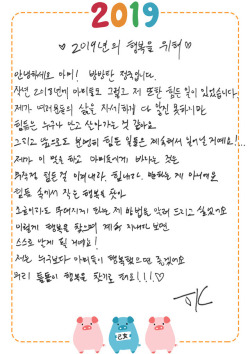 2019
♡ 2019년의 행복을 위해 ♡
안녕하세요 아미! 방탄 정국입니다.
작년 2018년에 아미들도 그렇고 저 또한 힘든 일이 있었습니다.
제가 여러분들의 삶을 자세하게 다 알진 못하지만
힘듦은 누구나 안고 살아가는 것 같아요
그리고 앞으로도 분명히 힘든 일들은 계속해서 일어날 거예요!...
제가 이 말을 하고 아미들에게 바라는 것은
힘듦 속에서 작은 행복을 찾아
조금이라도 무뎌지게 되는 제 방법을 알려 드리고 싶었어요
이렇게 행복을 찾으며 계속 지내다 보면
스스로 밝게 될 거예요!
저는 누구보다 아미들이 행복했으면 좋겠어요
우리 둘 다 행복을 찾기로 해요!!!♡
JK